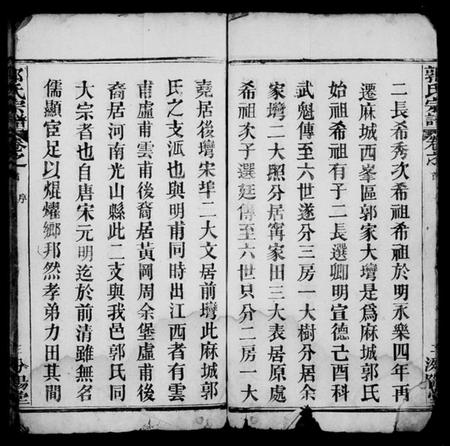 二長希秀次希祖希祖於明永樂四年丙
遷麻城西峯區郭家大塆是爲麻城郭氏
始祖希祖有子二長選卿明宣德己酉科
武魁傳至六世遂分三房一大樹分居余
家塆二大照分居甯家田三大表居原處
希祖次子選廷傳至六世只分二房一大
堯居後塆宋埠二大文居前塆此麻城郭
氏之支派也與明甫同時出江西者有雲
甫虛甫雲甫後裔居黃岡周余堡虛甫後
裔居河南光山縣此二支與我邑郭氏同
大宗者也自唐宋元明迄於前清雖無名
儒顯宦足以焜燿鄉邦然孝弟力田其間
郭氏宗譜
卷之首
序
汾陽堂